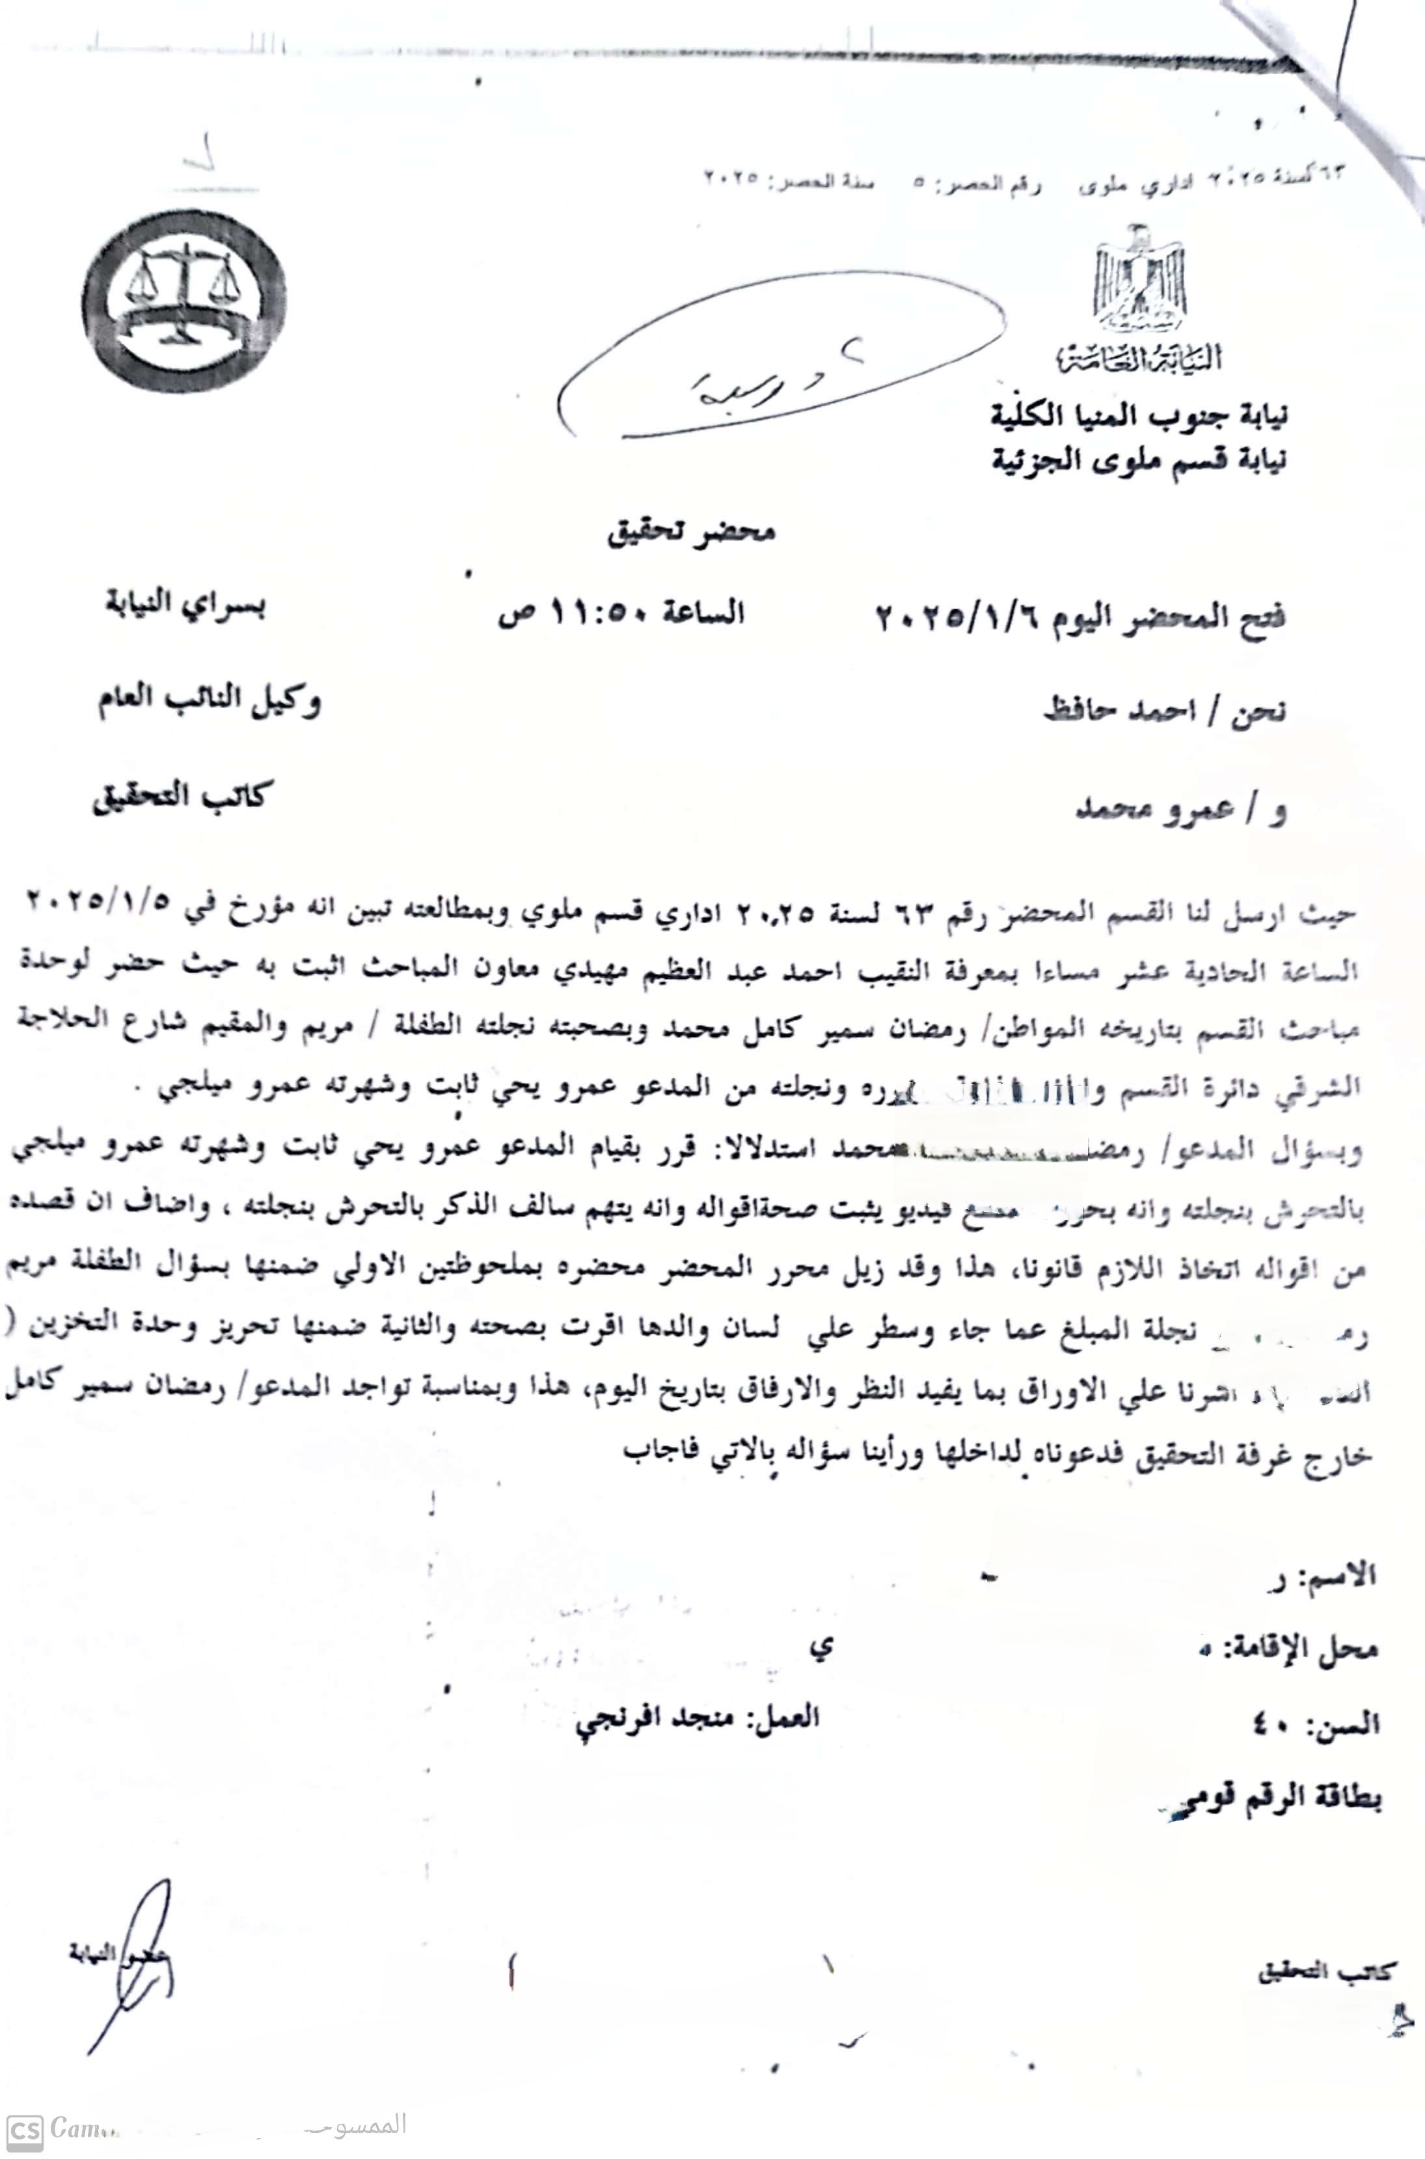 ٦٣ لسنة ٢٠٢٥ اداري ملوى رقم الحصر: ٥ سنة الحصر: ٢٠٢٥
النيابة العامة
نيابة جنوب المنيا الكلية
نيابة قسم ملوى الجزئية
محضر تحقيق
فتح المحضر اليوم ٢٠٢٥/١/٦ الساعة ١١:٥٠ ص بسراي النيابة
نحن / احمد حافظ وكيل النائب العام
و / عمرو محمد كاتب التحقيق
حيث ارسل لنا القسم المحضر رقم ٦٣ لسنة ٢٠٢٥ اداري قسم ملوي وبمطالعته تبين انه مؤرخ في ٢٠٢٥/١/٥
الساعة الحادية عشر مساءا بمعرفة النقيب احمد عبد العظيم مهيدي معاون المباحث اثبت به حيث حضر لوحدة
مباحث القسم بتاريخه المواطن/ رمضان سمير كامل محمد وبصحبته نجلته الطفلة / مريم والمقيم شارع الحلاجة
الشرقي دائرة القسم ونجلته من المدعو عمرو يحي ثابت وشهرته عمرو ميلجي .
وبسؤال المدعو/ محمد استدلالا: قرر بقيام المدعو عمرو يحي ثابت وشهرته عمرو ميلجي
بالتحرش بنجلته وانه فيديو يثبت صحةاقواله وانه يتهم سالف الذكر بالتحرش بنجلته ، واضاف ان قصده
من اقواله اتخاذ اللازم قانونا، هذا وقد زيل محرر المحضر محضره بملحوظتين الاولي ضمنها بسؤال الطفلة مريم
نجلة المبلغ عما جاء وسطر علي لسان والدها اقرت بصحته والثانية ضمنها تحريز وحدة التخزين (
اشرنا علي الاوراق بما يفيد النظر والارفاق بتاريخ اليوم، هذا وبمناسبة تواجد المدعو/ رمضان سمير كامل
خارج غرفة التحقيق فدعوناه لداخلها ورأينا سؤاله بالاتي فاجاب
الاسم: ر
محل الإقامة: ي
السن: ٤٠ العمل: منجد افرنجي
بطاقة الرقم قومي
كاتب التحقيق ١ عضو النيابة
CS Cam الممسوحـ